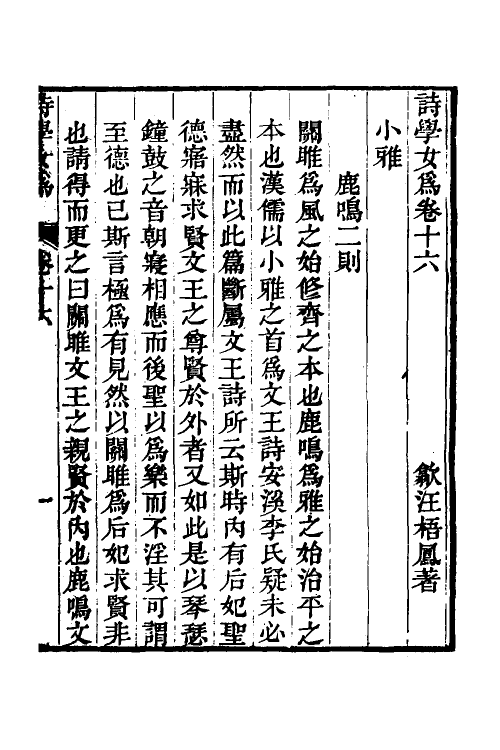 詩學女為卷十六
歙汪梧鳳著
小雅
鹿鳴二則
關雎為風之始修齊之本也鹿鳴為雅之始治平之
本也漢儒以小雅之首為文王詩安溪李氏疑未必
盡然而以此篇斷屬文王詩所云斯時內有后妃聖
德寤寐求賢文王之尊賢於外者又如此是以琴瑟
鐘鼓之音朝寢相應而後聖以為樂而不淫其可謂
至德也已斯言極為有見然以關雎為后妃求賢非
也請得而更之曰關雎文王之親賢於內也鹿鳴文
詩學女為
卷十六
一